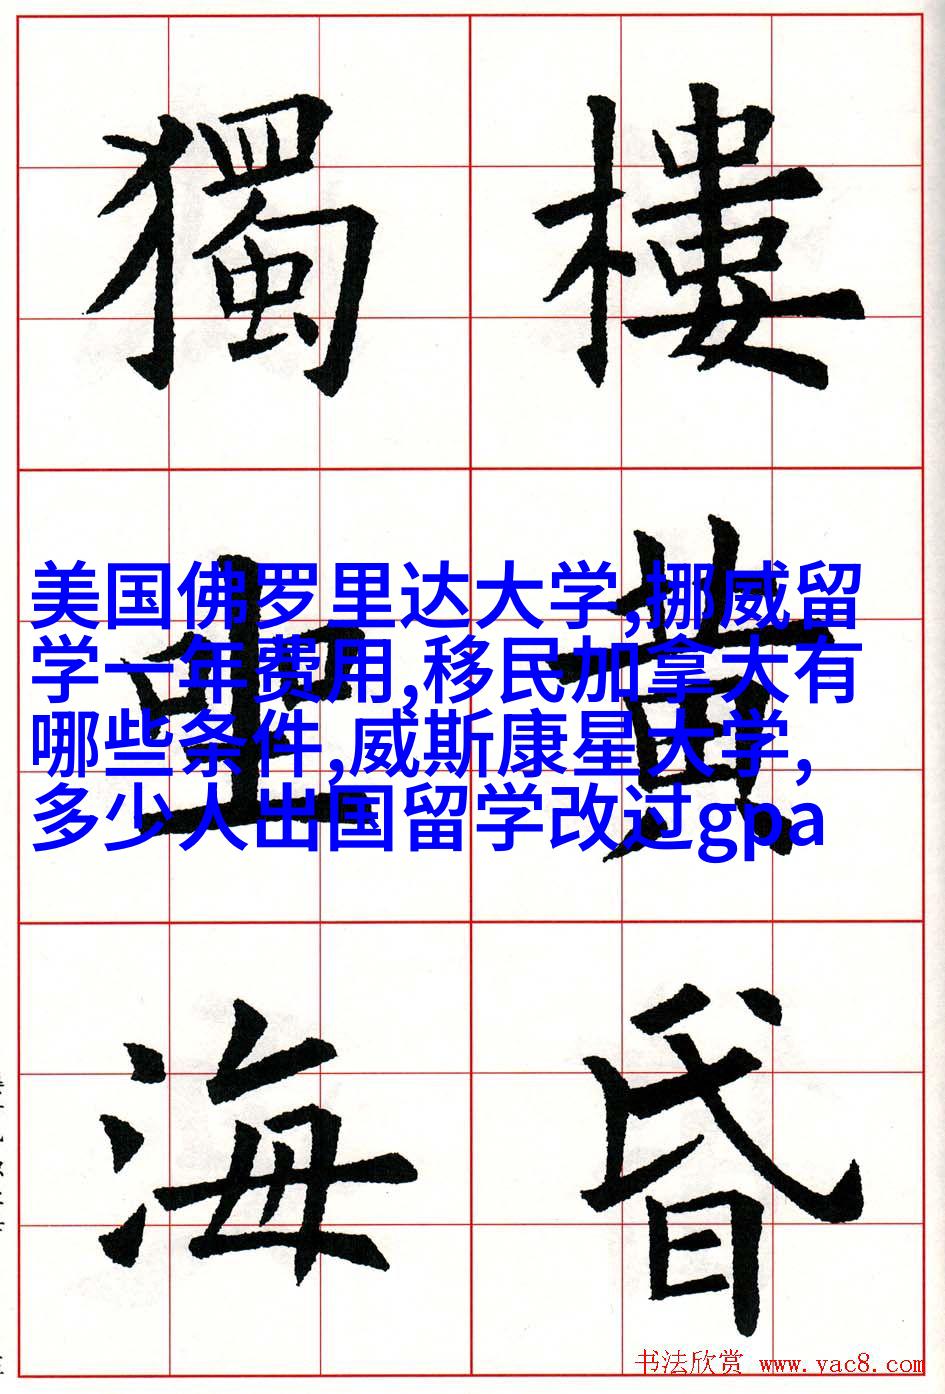 樓黄昏
獨海
美国佛罗里达大学,挪威留
学一年费用,移民加拿大有
哪些条件,威斯康星大学,
多少人出国留学改过gpa
书法欣赏 www.yac8.com